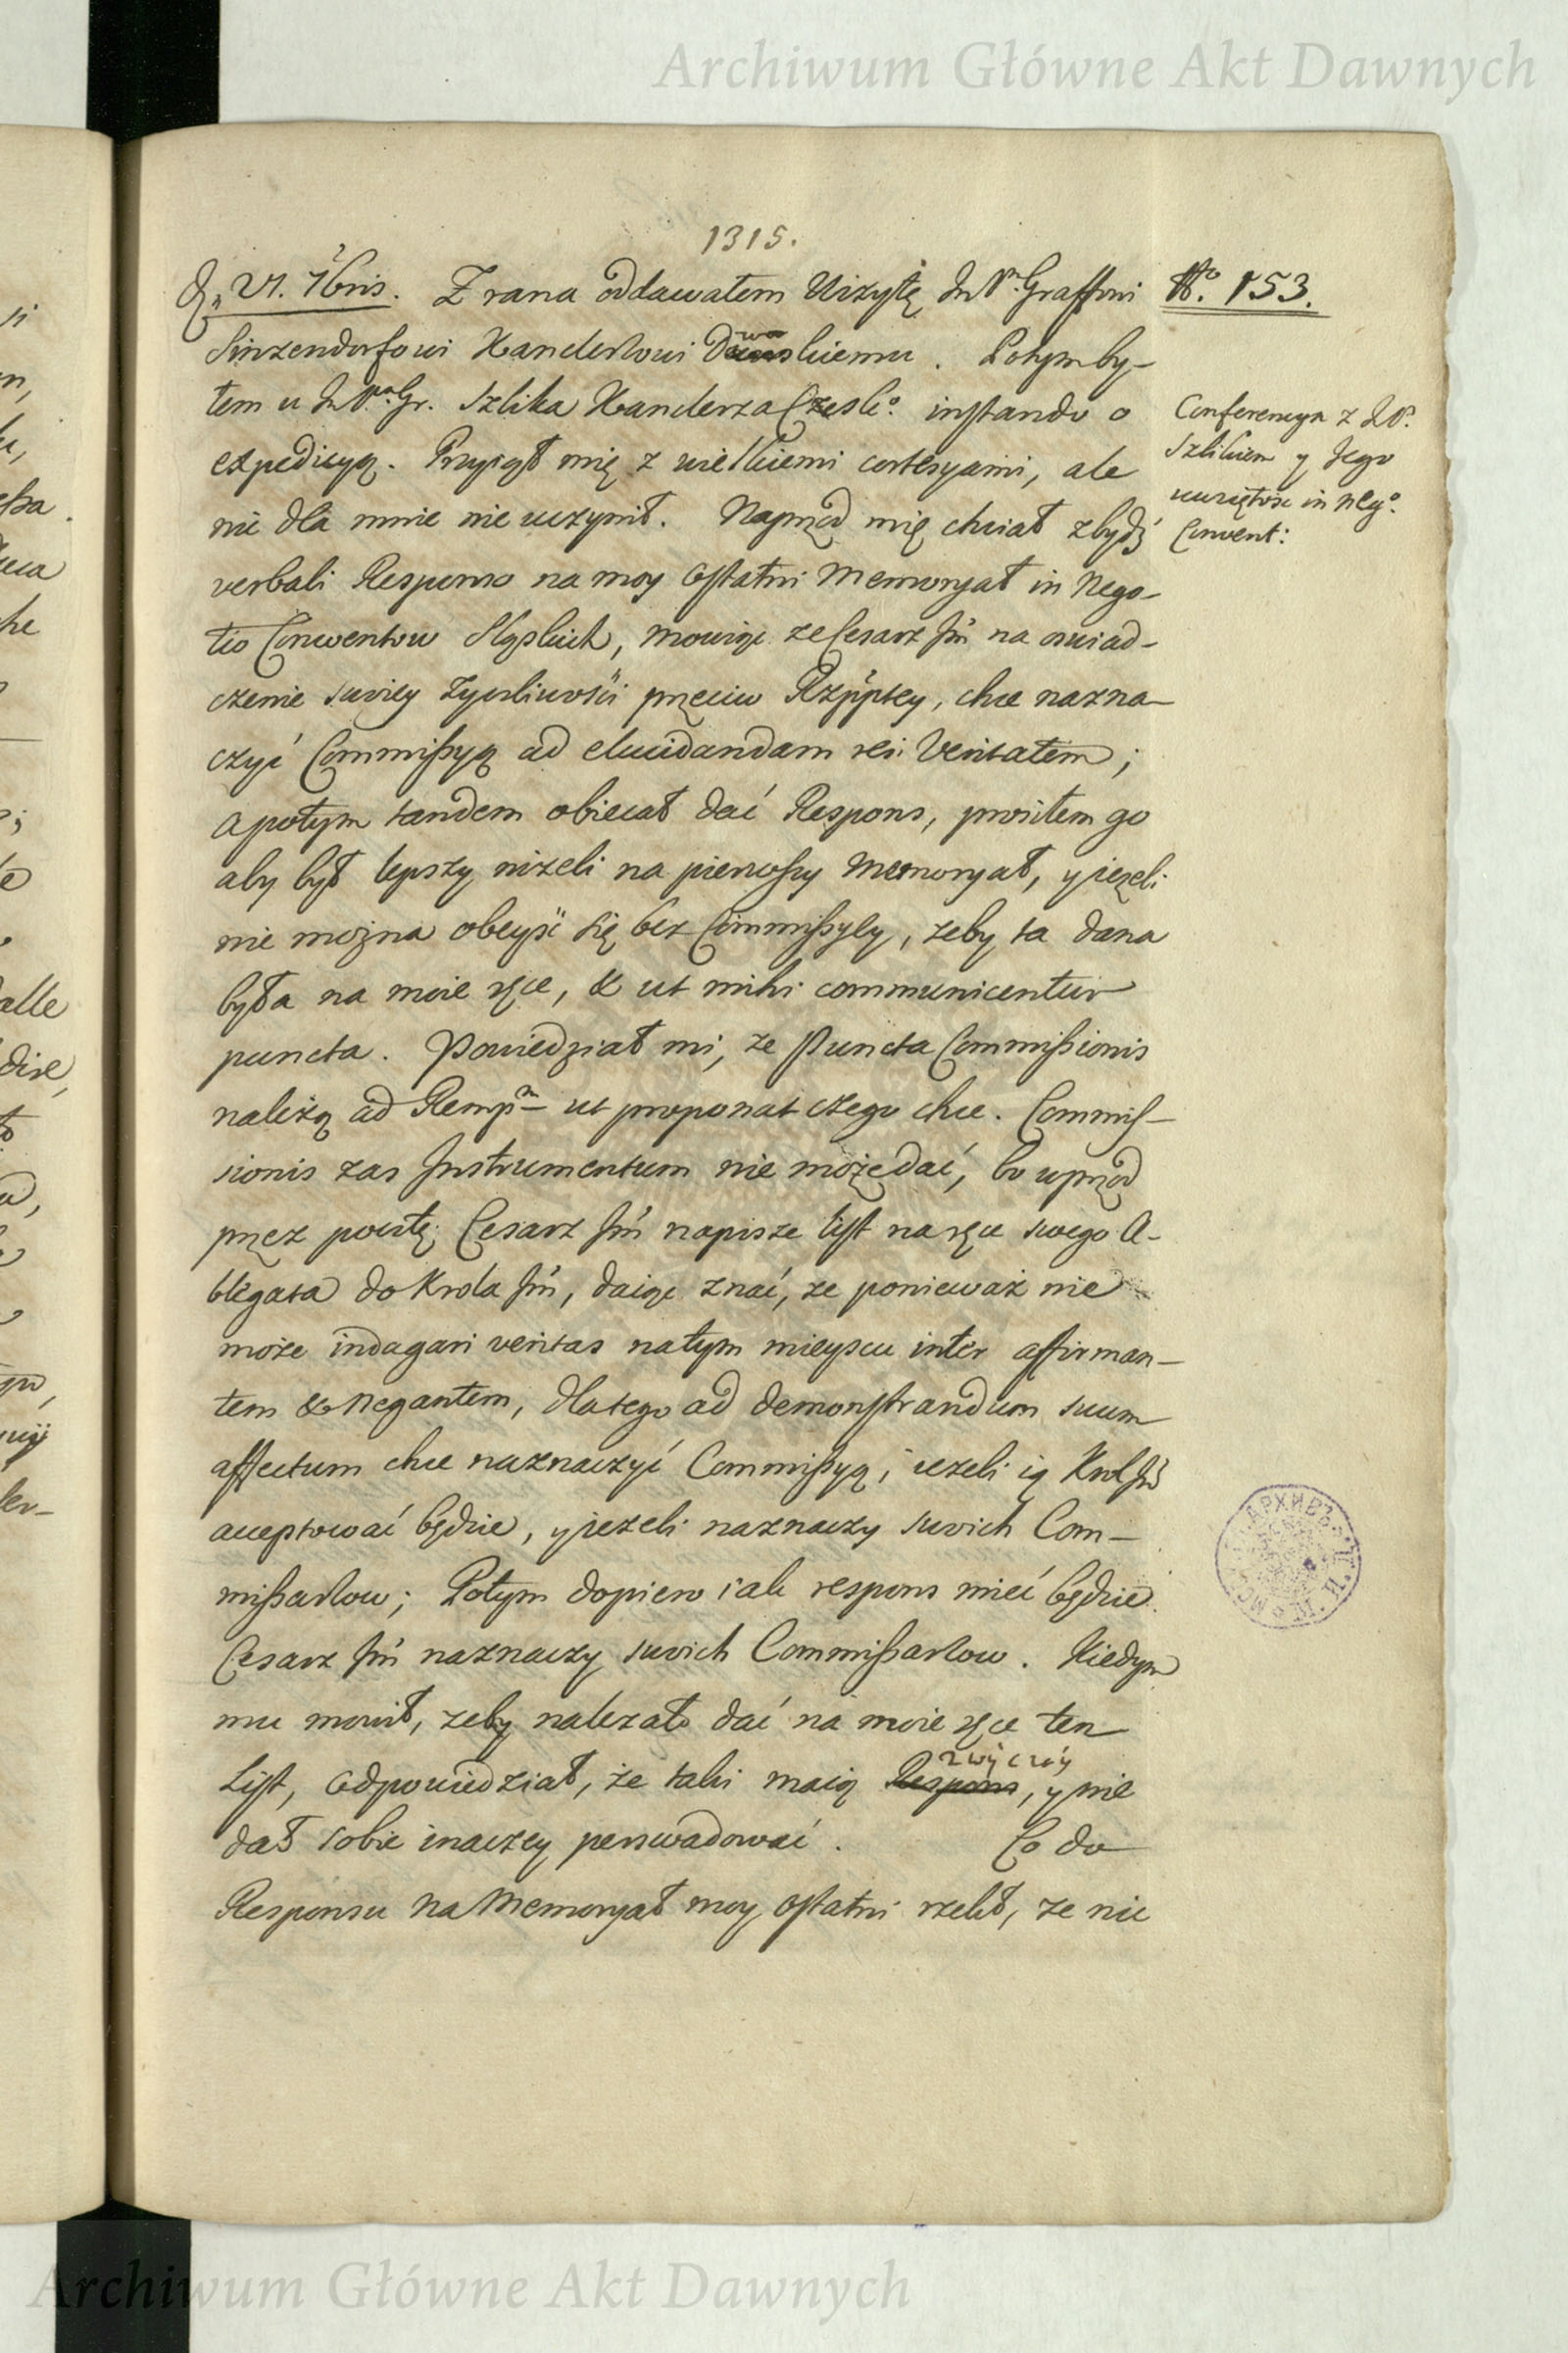 Archiwum Główne Akt Dawnych
1315.
D. 21. 7bris. Z rana oddawałem Wizytę JmP. Graffowi
Sinzendorfowi Kanclerzowi Dworskiemu. Potym by-
łem u JmP. Gr. Szlika Kanclerza Czesko. instando o
expedicyą. Przyiął mię z wielkiemi cortesyami, ale
nic dla mnie nie uczynił. Naprzod mię chciał zbydź
verbali Responso na moy ostatni Memoryał in Nego-
tio Conwentow Sląskich, mowiąc ze Cesarz Jm̃ na oswiad-
czenie swoiey zyczliwosci przeciw Rzpptey, chce nazna-
czyć Commissyą ad elucidandam rei Veritatem;
a potym tandem obiecał dać Respons, prosiłem go
aby był lepszy nizeli na pierwszy Memoryał, y iezeli
nie można obeysć się bez Commissyey, zeby ta dana
była na moie ręce, & ut mihi communicentur
puncta. Powiedział mi, ze Puncta Commissionis
należą ad Remp̃m ut proponat czego chce. Commis-
sionis zas Instrumentum nie może dać, bo wprzod
przez pocztę Cesarz Jm̃ napisze list na ręce swego A-
blegata do Krola Jm̃, daiąc znać, ze ponieważ nie
może indagari veritas na tym mieyscu inter affirman-
tem & negantem, dlatego ad demonstrandum suum
affectum chce naznaczyć Commissyą, iezeli ią Krol Jm̃
acceptować będzie, y iezeli naznaczy swoich Com-
missarzow; Potym dopiero iak respons mieć będzie
Cesarz Jm̃ naznaczy swoich Commissarzow. Kiedym
mu mowił, zeby nalezało dać na moie ręce ten
List, odpowiedział, że taki maią Respons zwyczay, y nie
dał sobie inaczey perswadować. Co do
Responsu na Memoryał moy ostatni rzekł, ze nie
No. 153.
Conferencya z JP.
Szlikiem y Jego
in Nego.
Convent:
Archiwum Główne Akt Dawnych